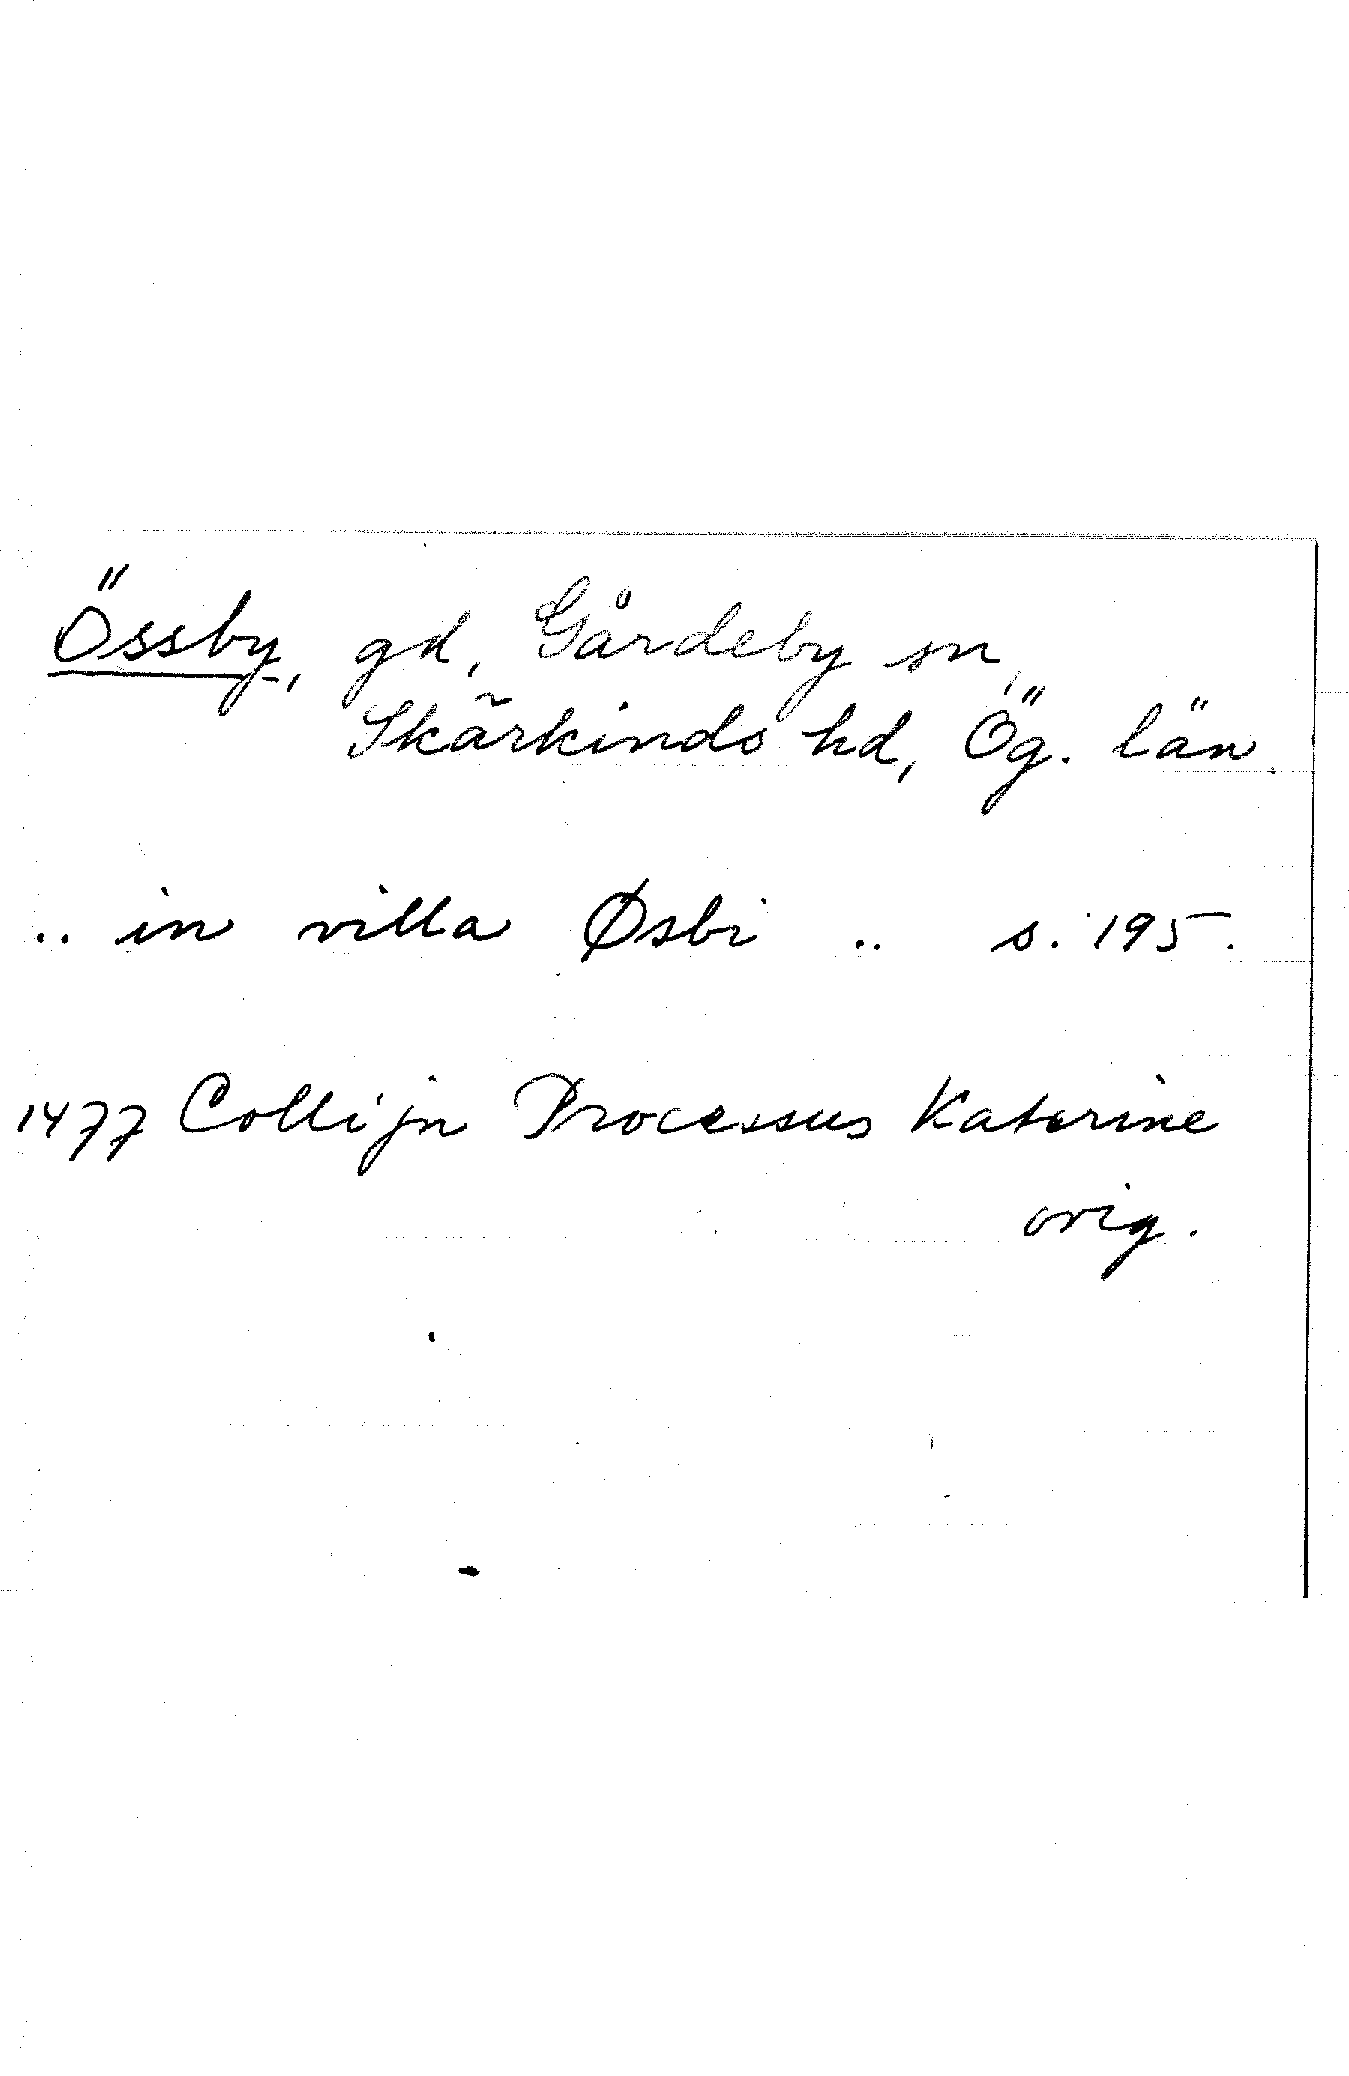 Össby, gd, Gårdeby sn,
Skärkinds hd, Ög. län.
.. in villa Øsbi .. s. 195.
1477 Collijn Processus Katerine
orig.